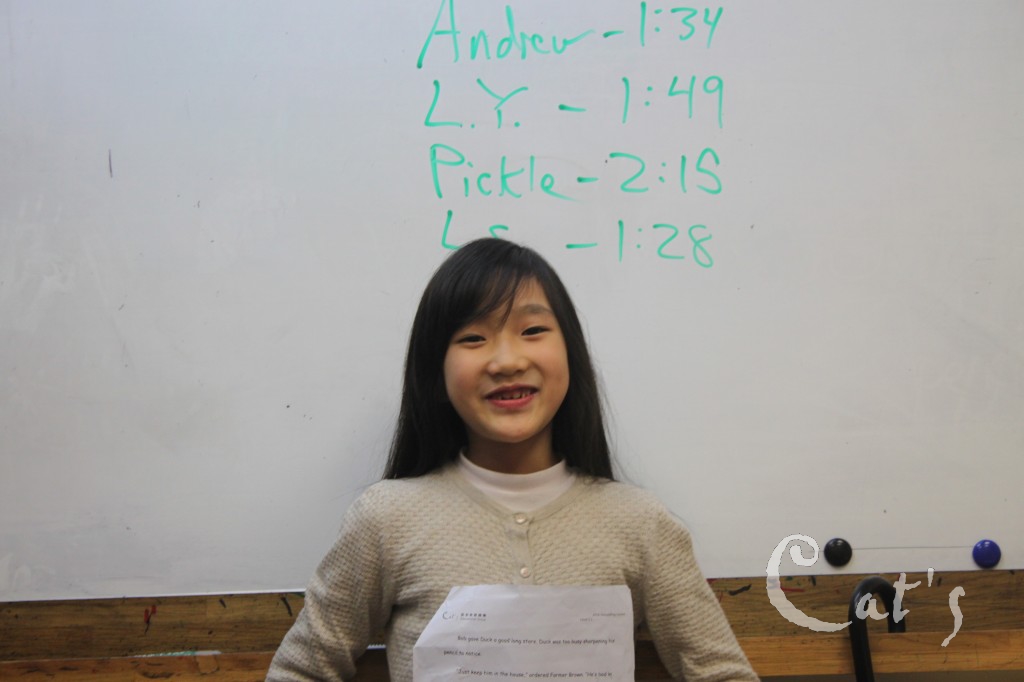 Andrew - 1:34
L.Y. - 1:49
Pickle - 2:15
- 1:28
Cat's
Bob gave Duck a good long stare. Duck was too busy sharpening his
pencil to notice.
"Just keep him in the house," ordered Farmer Brown. "He's bad in